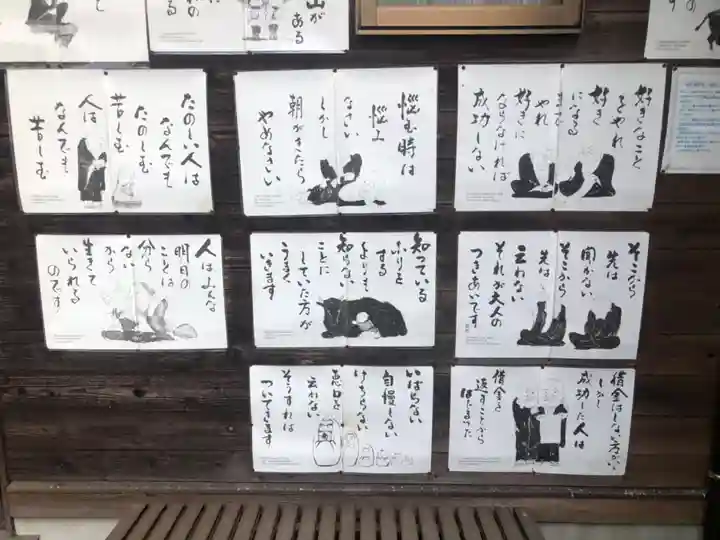 山が
ある
たのしい人は
なんでも
たのしむ
苦しむ
人は
なんでも
苦しむ
悩む時は
悩み
なさい
しかし
朝がきたら
やめなさい
好きなこと
をやれ
好き
になる
まで
やれ
好きに
ならなければ
成功しない
人はみんな
明日の
ことは
分ら
ない
から
生きて
いられる
のです
知っている
ふりを
する
よりも
知らない
ことに
していた方が
うまく
いきます
そこから
先は
聞かない
そこから
先は
云わない
それが大人の
つきあいです
いばらない
自慢しない
悪口を
云わない
そうすれば
ついてきます
借金はしない方がいい
しかし
成功した人は
借金を
返すことから
はじまった